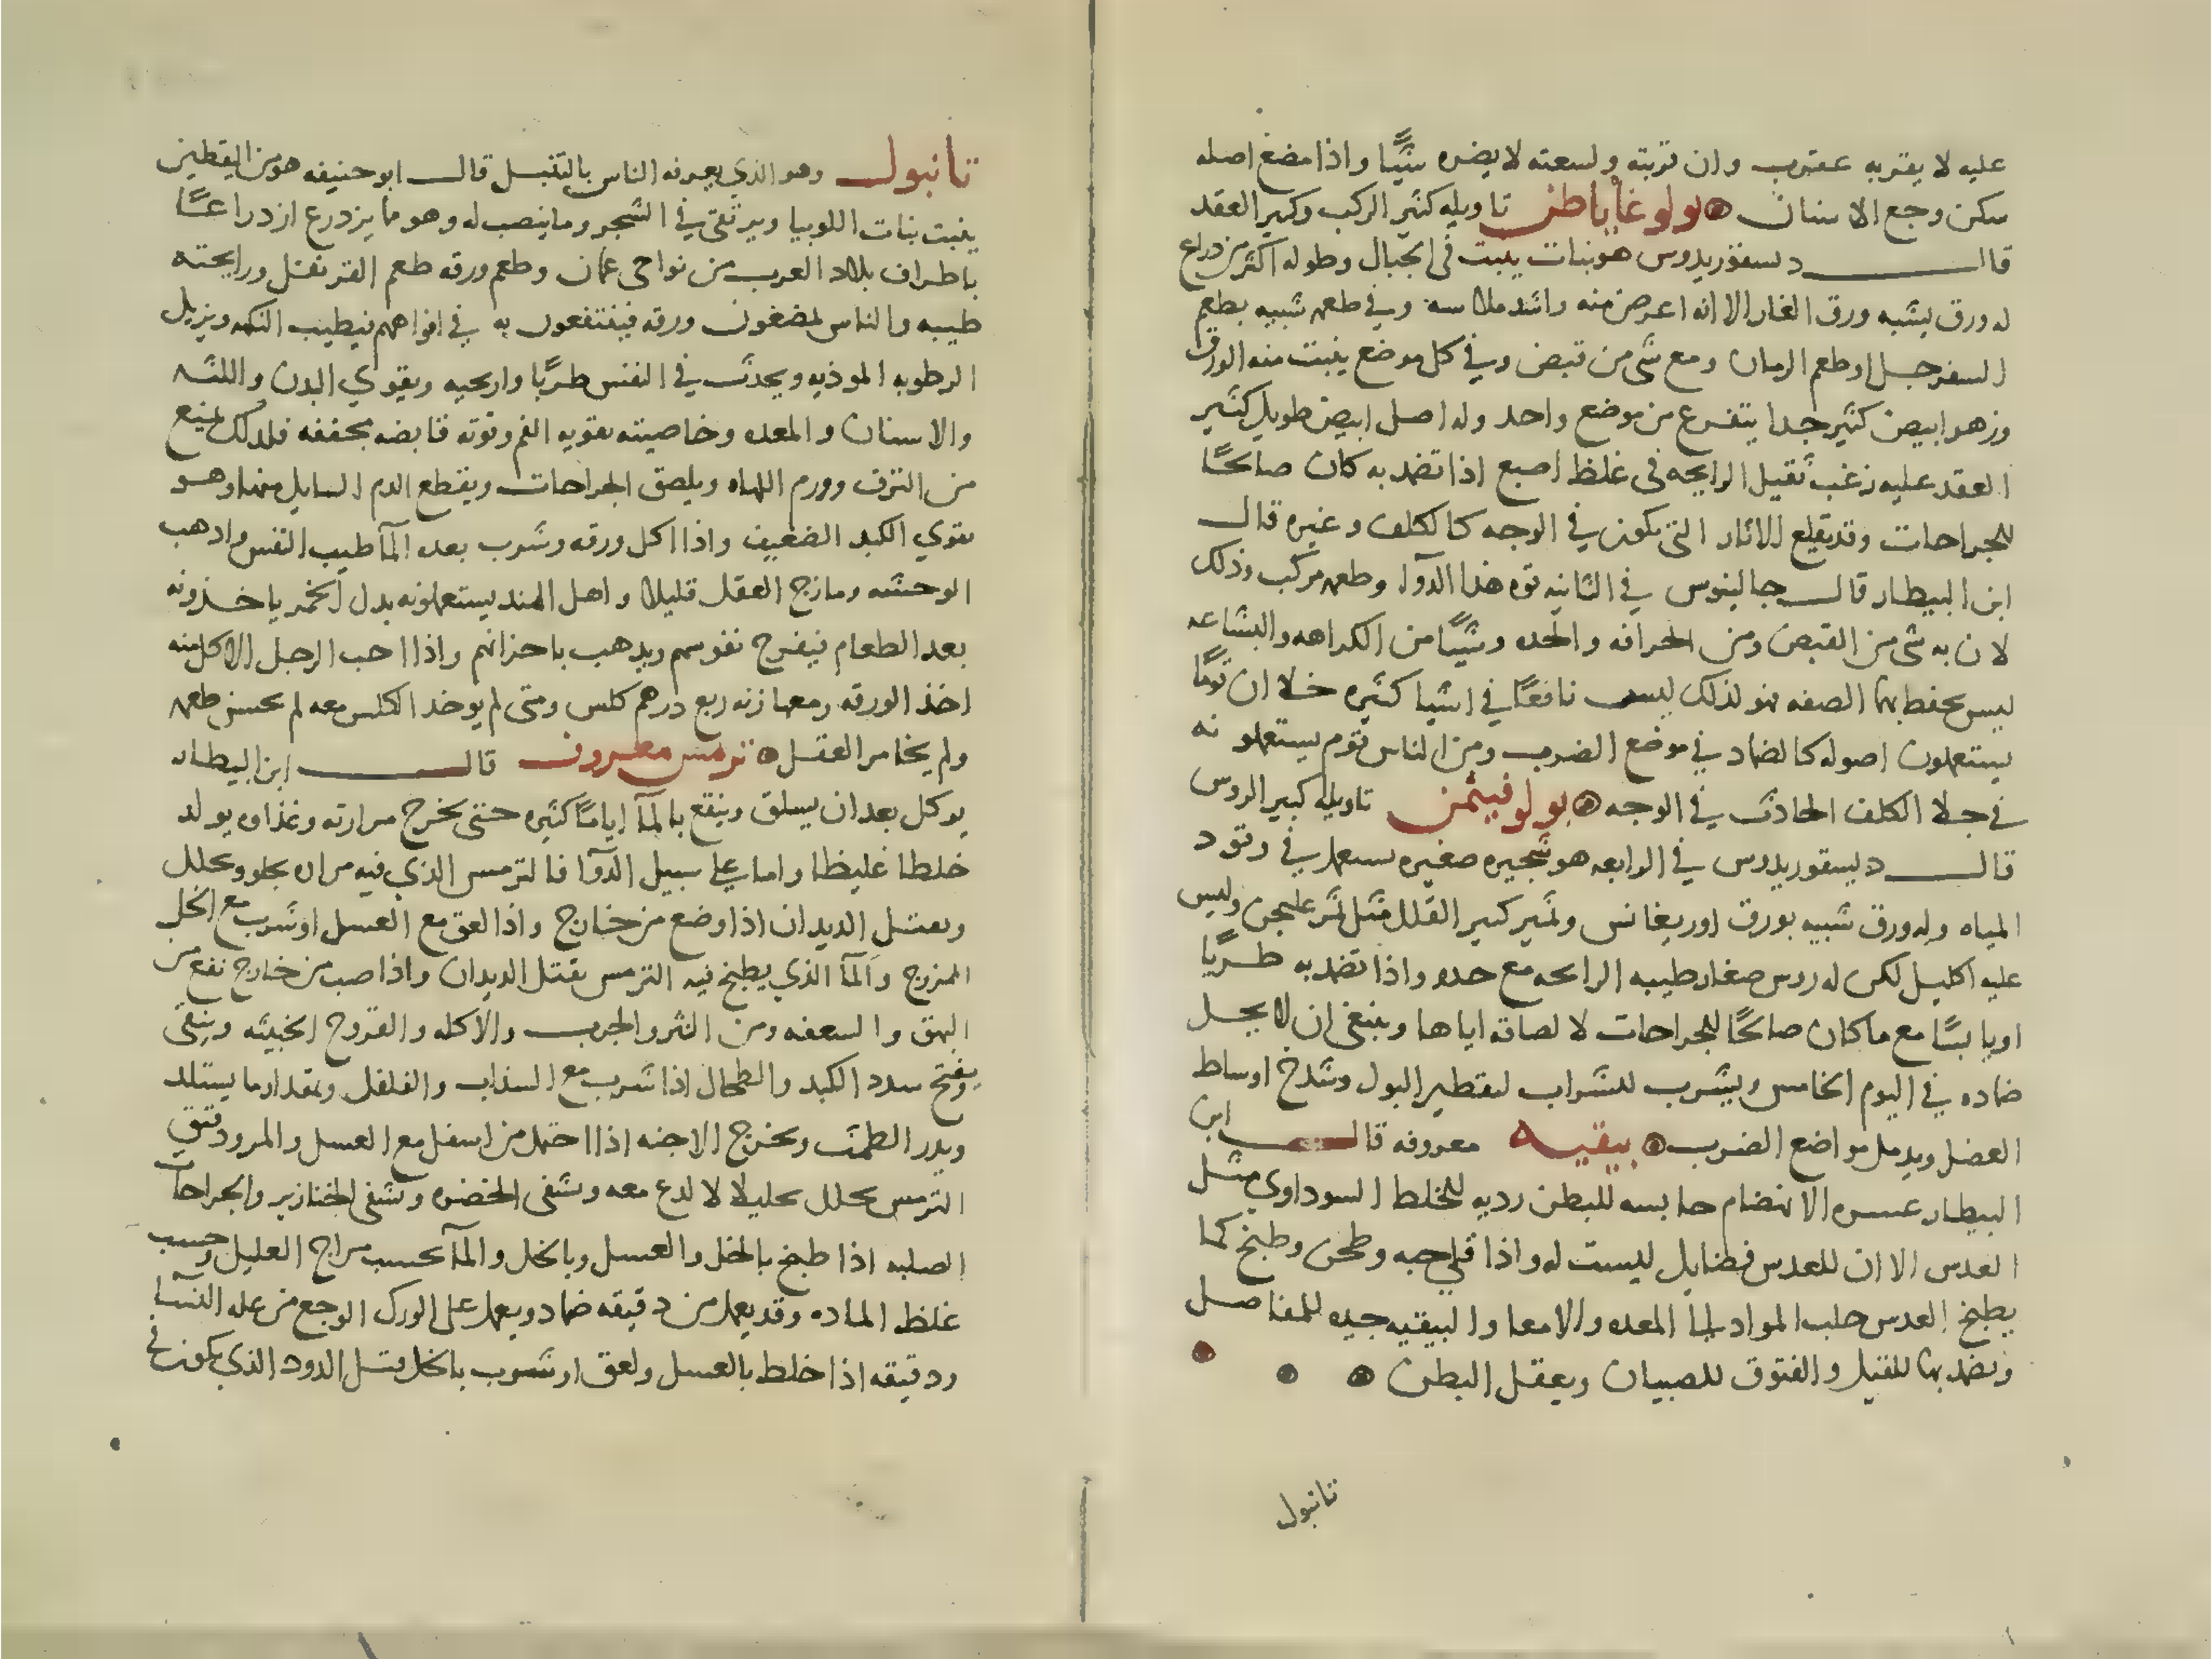 عليه لا يقتربه عقرب وان قربته ولسعته لا يضره شيًا واذا مضغ اصله
سكن وجع الاسنان بولوغاناطن تاويله كثير الركب وكير العقد
قال دسقوريدوس هو نبات ينبت في الجبال وطوله اكثر من ذراع
له ورق يشبه ورق الغار الا انه اعرض منه واشد ملاسه وفي طعمه شبيه بطعم
السفرجل او طعم الرمان ومع شى من قبض وفي كل موضع ينبت منه الورق
وزهر ابيض كثير جدا يتفرع من موضع واحد وله اصل ابيض طويل كثير
العقد عليه زغب ثقيل الرايحه في غلظ اصبع اذا تضمد به كان صالحًا
للجراحات وقد يقلع الاثار التى تكون في الوجه كالكلف وغيره قال
ابن البيطار قال جالينوس في الثانيه قوه هذا الدوآ وطعمه مركب وذلك
لان به شى من القبض ومن الحرافه والحده وشيًا من الكراهه والبشاعه
ليس يحفظ بهذا الصفه فهو لذلك ليس نافعًا في اشيا كثيره خلا ان قومًا
يستعملون اصوله كالضماد في موضع الضرب ومن الناس قوم يستعملونه
في جلا الكلف الحادث في الوجه بولوفيثمن تاويله كبير الروس
قال ديسقوريدوس في الرابعه هو شجيره صغيره تستعمل في وقود
المياه وله ورق شبيه بورق اوريغانس وثمر كبير القلل مثل ثمر غليجن وليس
عليه اكليل لكن له روس صغار طيبه الرايحه مع حده واذا تضمد به طريًا
او يابسًا مع ما كان صالحًا للجراحات لالصاقه اياها وينبغى ان لا يحل
ضماده في اليوم الخامس ويشرب للشراب لتقطير البول وشدخ اوساط
العضل ويدمل مواضع الضرب بيقيه معروفه قال ابن
البيطار عسره الانهضام حابسه للبطن رديه للخلط السوداوي مثل
العدس الا ان للعدس فضايل ليست له واذا قلي حبه وطحن وطبخ كما
يطبخ العدس جلب المواد الى المعده والامعا والبيقيه جيده للمفاصل
وتضمد بها للفتيل والفتوق للصبيان ويعقل البطن
تانبول
تانبول وهو الذي يعرفه الناس بالتنبل قال ابو حنيفه هو من اليقطين
ينبت نبات اللوبيا ويرتقى في الشجر وما ينصب له وهو ما يزدرع ازدراعًا
باطراف بلاد العرب من نواحى عمان وطعم ورقه طعم القرنفل ورايحته
طيبه والناس يمضغون ورقه فينتفعون به في افواههم فيطيب النكهه ويزيل
الرطوبه الموذيه ويحدث في النفس طربًا واريحيه ويقوي البدن واللثه
والاسنان والمعده وخاصيته تقويه الفم وقوته قابضه مجففه فلذلك يمنع
من النزف وورم اللهاه ويلصق الجراحات ويقطع الدم السايل منها وهو
يقوي الكبد الضعيف واذا اكل ورقه وشرب بعده المآ طيب النفس واذهب
الوحشه ومازج العقل قليلا واهل الهند يستعملونه بدل الخمر ياخذونه
بعد الطعام فيفرح نفوسهم ويذهب باحزانهم واذا احب الرجل الاكل منه
اخذ الورقه ومعها زنه ربع درهم كلس ومتى لم يوخذ الكلس معه لم يحسن طعمه
ولم يخامر العقل ترمس معروف قال ابن البيطار
يوكل بعد ان يسلق وينقع بالمآ ايامًا كثيره حتى يخرج مرارته وغذاوه يولد
خلطا غليظا واما على سبيل الدوآ فالترمس الذي فيه مراره يجلو ويحلل
ويقتل الديدان اذا وضع من خارج واذا لعق مع العسل او شرب مع الخل
الممزوج والمآ الذي يطبخ فيه الترمس يقتل الديدان واذا صب من خارج نفع من
البهق والسعفه ومن البثر والجرب والاكله والقروح الخبيثه وينقى
ويفتح سدد الكبد والطحال اذا شرب مع السذاب والفلفل ومقدار ما يستلذ
ويدر الطمث ويخرج الاجنه اذا احتمل من اسفل مع العسل والمر ودقيق
الترمس يحلل تحليلا لا لدع معه وتشفى الخضره وتشفى الخنازير والجراحات
الصلبه اذا طبخ بالخل والعسل وبالخل والمآ بحسب مزاج العليل وحسب
غلظ الماده وقد يعمل من دقيقه ضماد ويعمل على الورك الوجع من عله النسا
ودقيقه اذا خلط بالعسل ولعق او شرب بالخل قتل الدود الذي يكون في